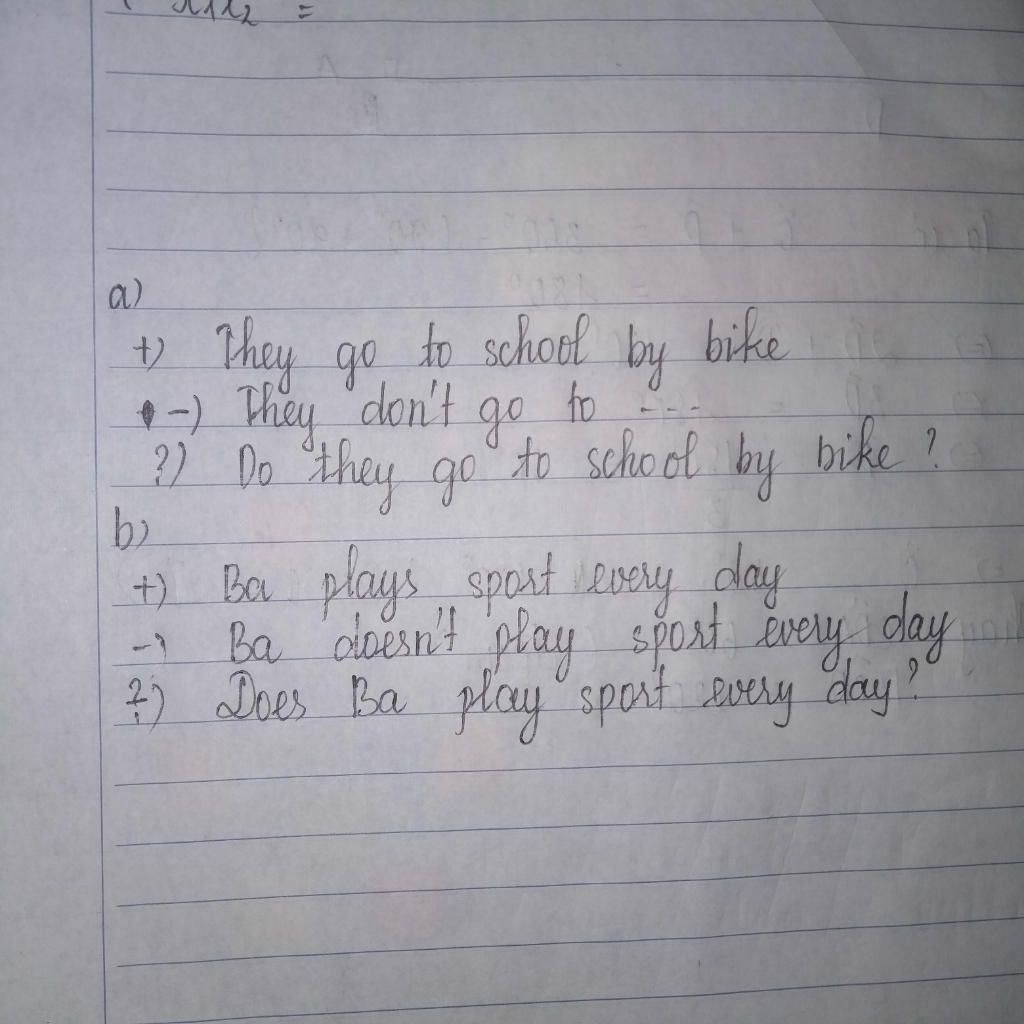 x1x2 =
a)
+) They go to school by bike
-) They don't go to ---
?) Do they go to school by bike ?
b)
+) Ba plays sport every day
-) Ba doesn't play sport every day
?) Does Ba play sport every day?